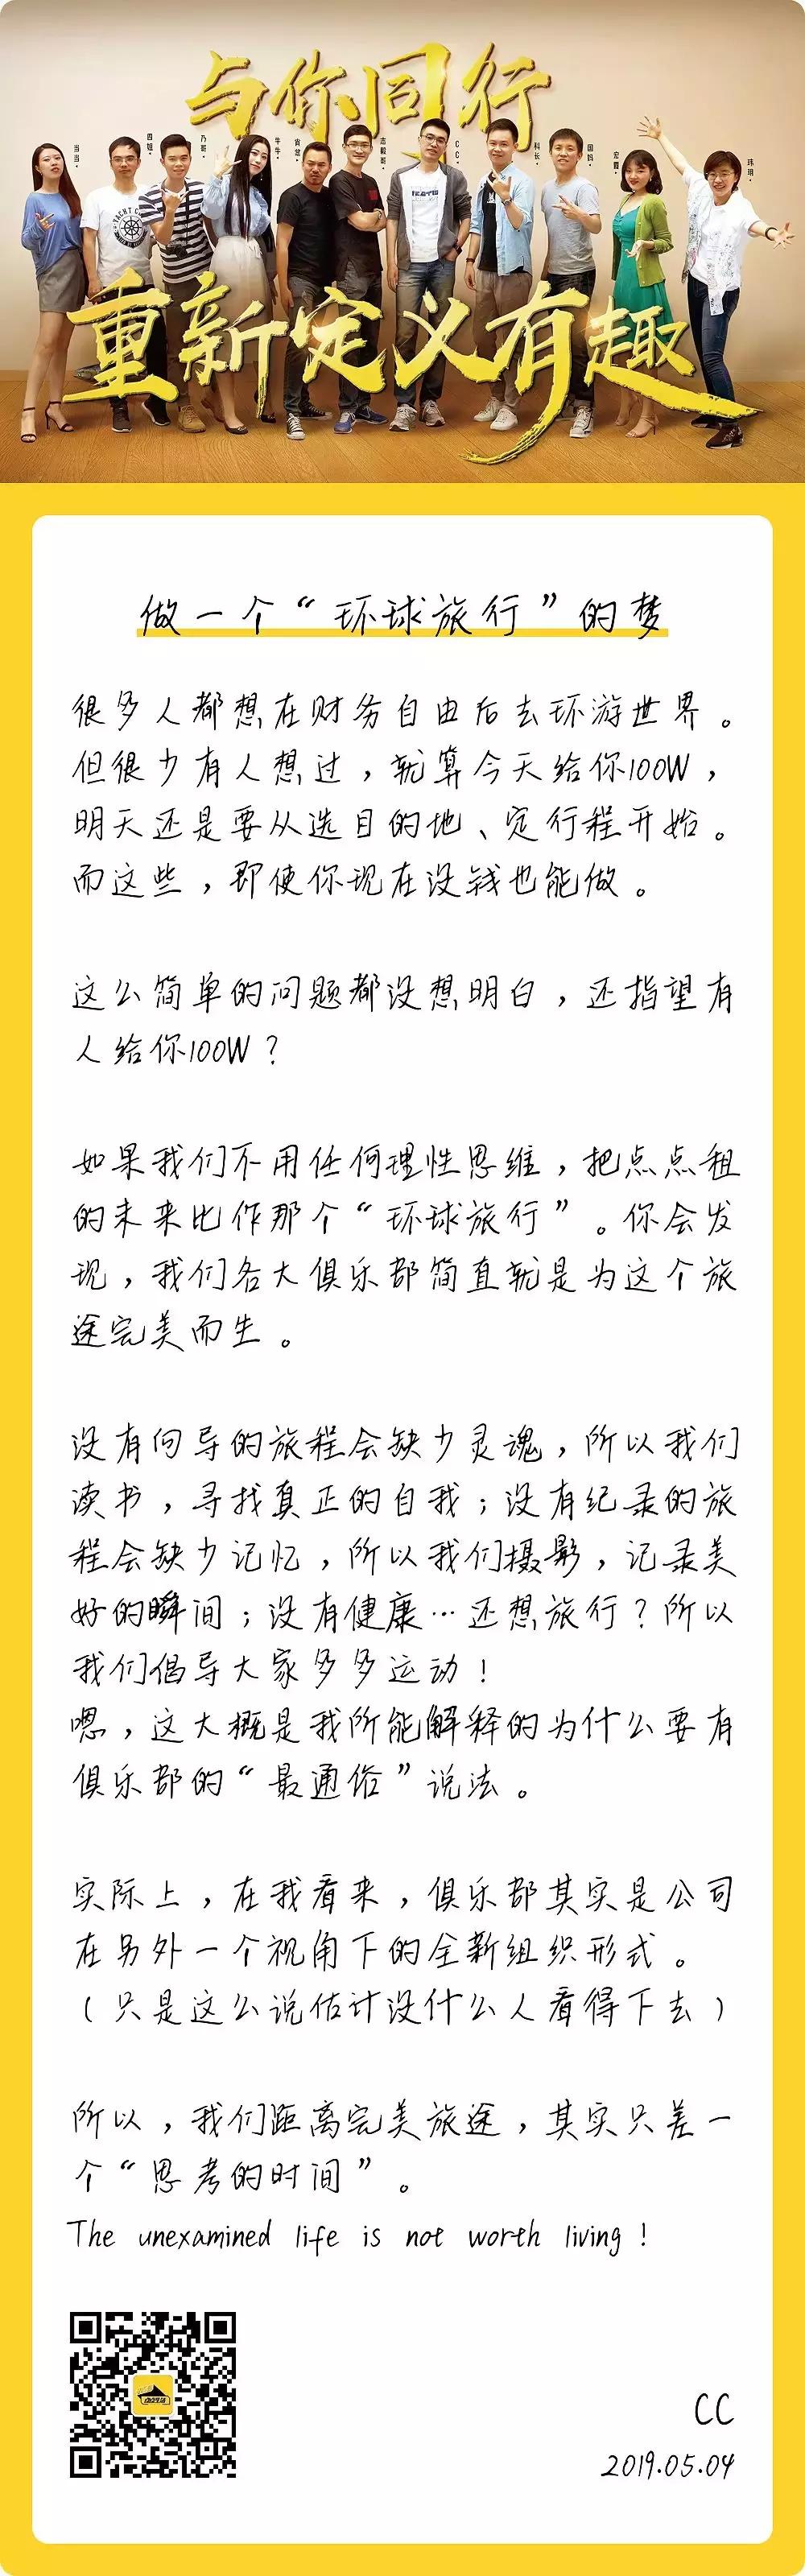 与你同行
当当·
四姐·
乃哥·
牛牛·
志毅哥·
CC·
科长·
国妈·
宏霞·
玮玥·
重新定义有趣
做一个“环球旅行”的梦
很多人都想在财务自由后去环游世界。
但很少有人想过，就算今天给你100W，
明天还是要从选目的地、定行程开始。
而这些，即使你现在没钱也能做。
这么简单的问题都没想明白，还指望有
人给你100W？
如果我们不用任何理性思维，把点点租
的未来比作那个“环球旅行”。你会发
现，我们各大俱乐部简直就是为这个旅
途完美而生。
没有向导的旅程会缺少灵魂，所以我们
读书，寻找真正的自我；没有纪录的旅
程会缺少记忆，所以我们摄影，记录美
好的瞬间；没有健康…还想旅行？所以
我们倡导大家多多运动！
嗯，这大概是我所能解释的为什么要有
俱乐部的“最通俗”说法。
实际上，在我看来，俱乐部其实是公司
在另外一个视角下的全新组织形式。
（只是这么说估计没什么人看得下去）
所以，我们距离完美旅途，其实只差一
个“思考的时间”。
The unexamined life is not worth living！
CC
2019.05.04